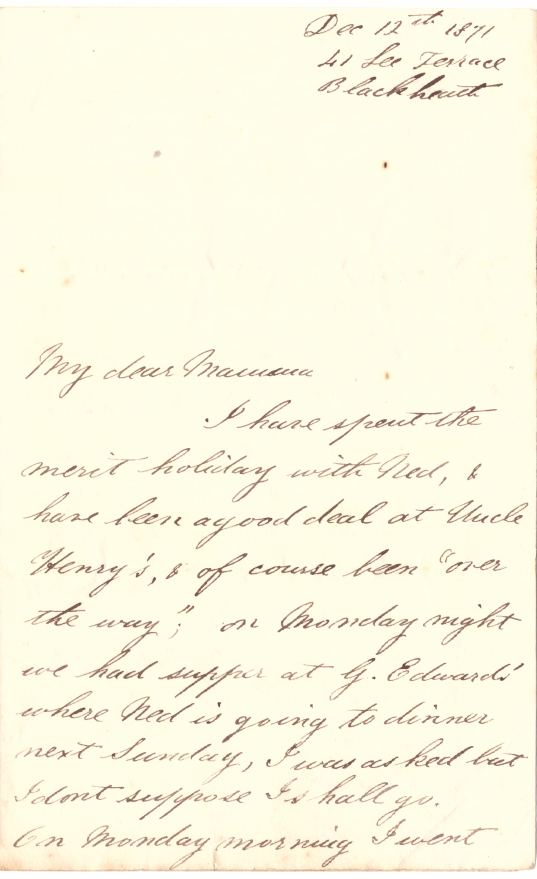 Dec 12th 1871
41 Lee Terrace
Blackheath
My dear Mamma
I have spent the
merit holiday with Ned, &
have been a good deal at Uncle
Henry's, & of course been "over
the way"; on Monday night
we had supper at G. Edwards'
where Ned is going to dinner
next Sunday, I was asked but
I dont suppose I shall go.
On Monday morning I went